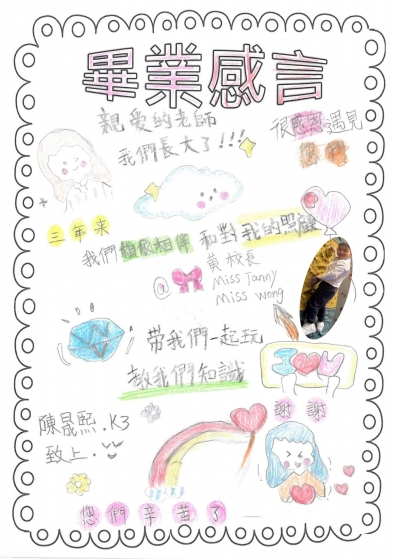 畢業感言
親愛的老師
我們長大了!!!
很感恩遇見
三年來
我們 相伴 和對我的照顧
黃校長
Miss Janny
Miss Wong
帶我們一起玩
教我們知識
I U
謝謝
陳晟熙.K3
致上.
您們辛苦了